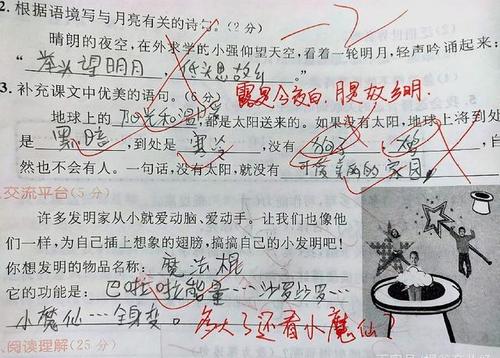 2. 根据语境写与月亮有关的诗句。(2分)
-2
晴朗的夜空,在外求学的小强仰望天空,看着一轮明月,轻声吟诵起来:
“举头望明月,低头思故乡。”
露是今夜白,月是故乡明.
3. 补充课文中优美的语句。(6分)
地球上的光和温暖,都是太阳送来的。如果没有太阳,地球上将到处
是黑暗,到处是寒冷,没有
然也不会有人。一句话,没有太阳,就没有可爱美丽的家园。
交流平台(5分)
许多发明家从小就爱动脑、爱动手。让我们也像他
们一样,为自己插上想象的翅膀,搞搞自己的小发明吧!
你想发明的物品名称:魔法棍
它的功能是:巴啦啦能量……沙罗沙罗…
小魔仙…全身变。
多大了还看小魔仙?
阅读理解(25分)